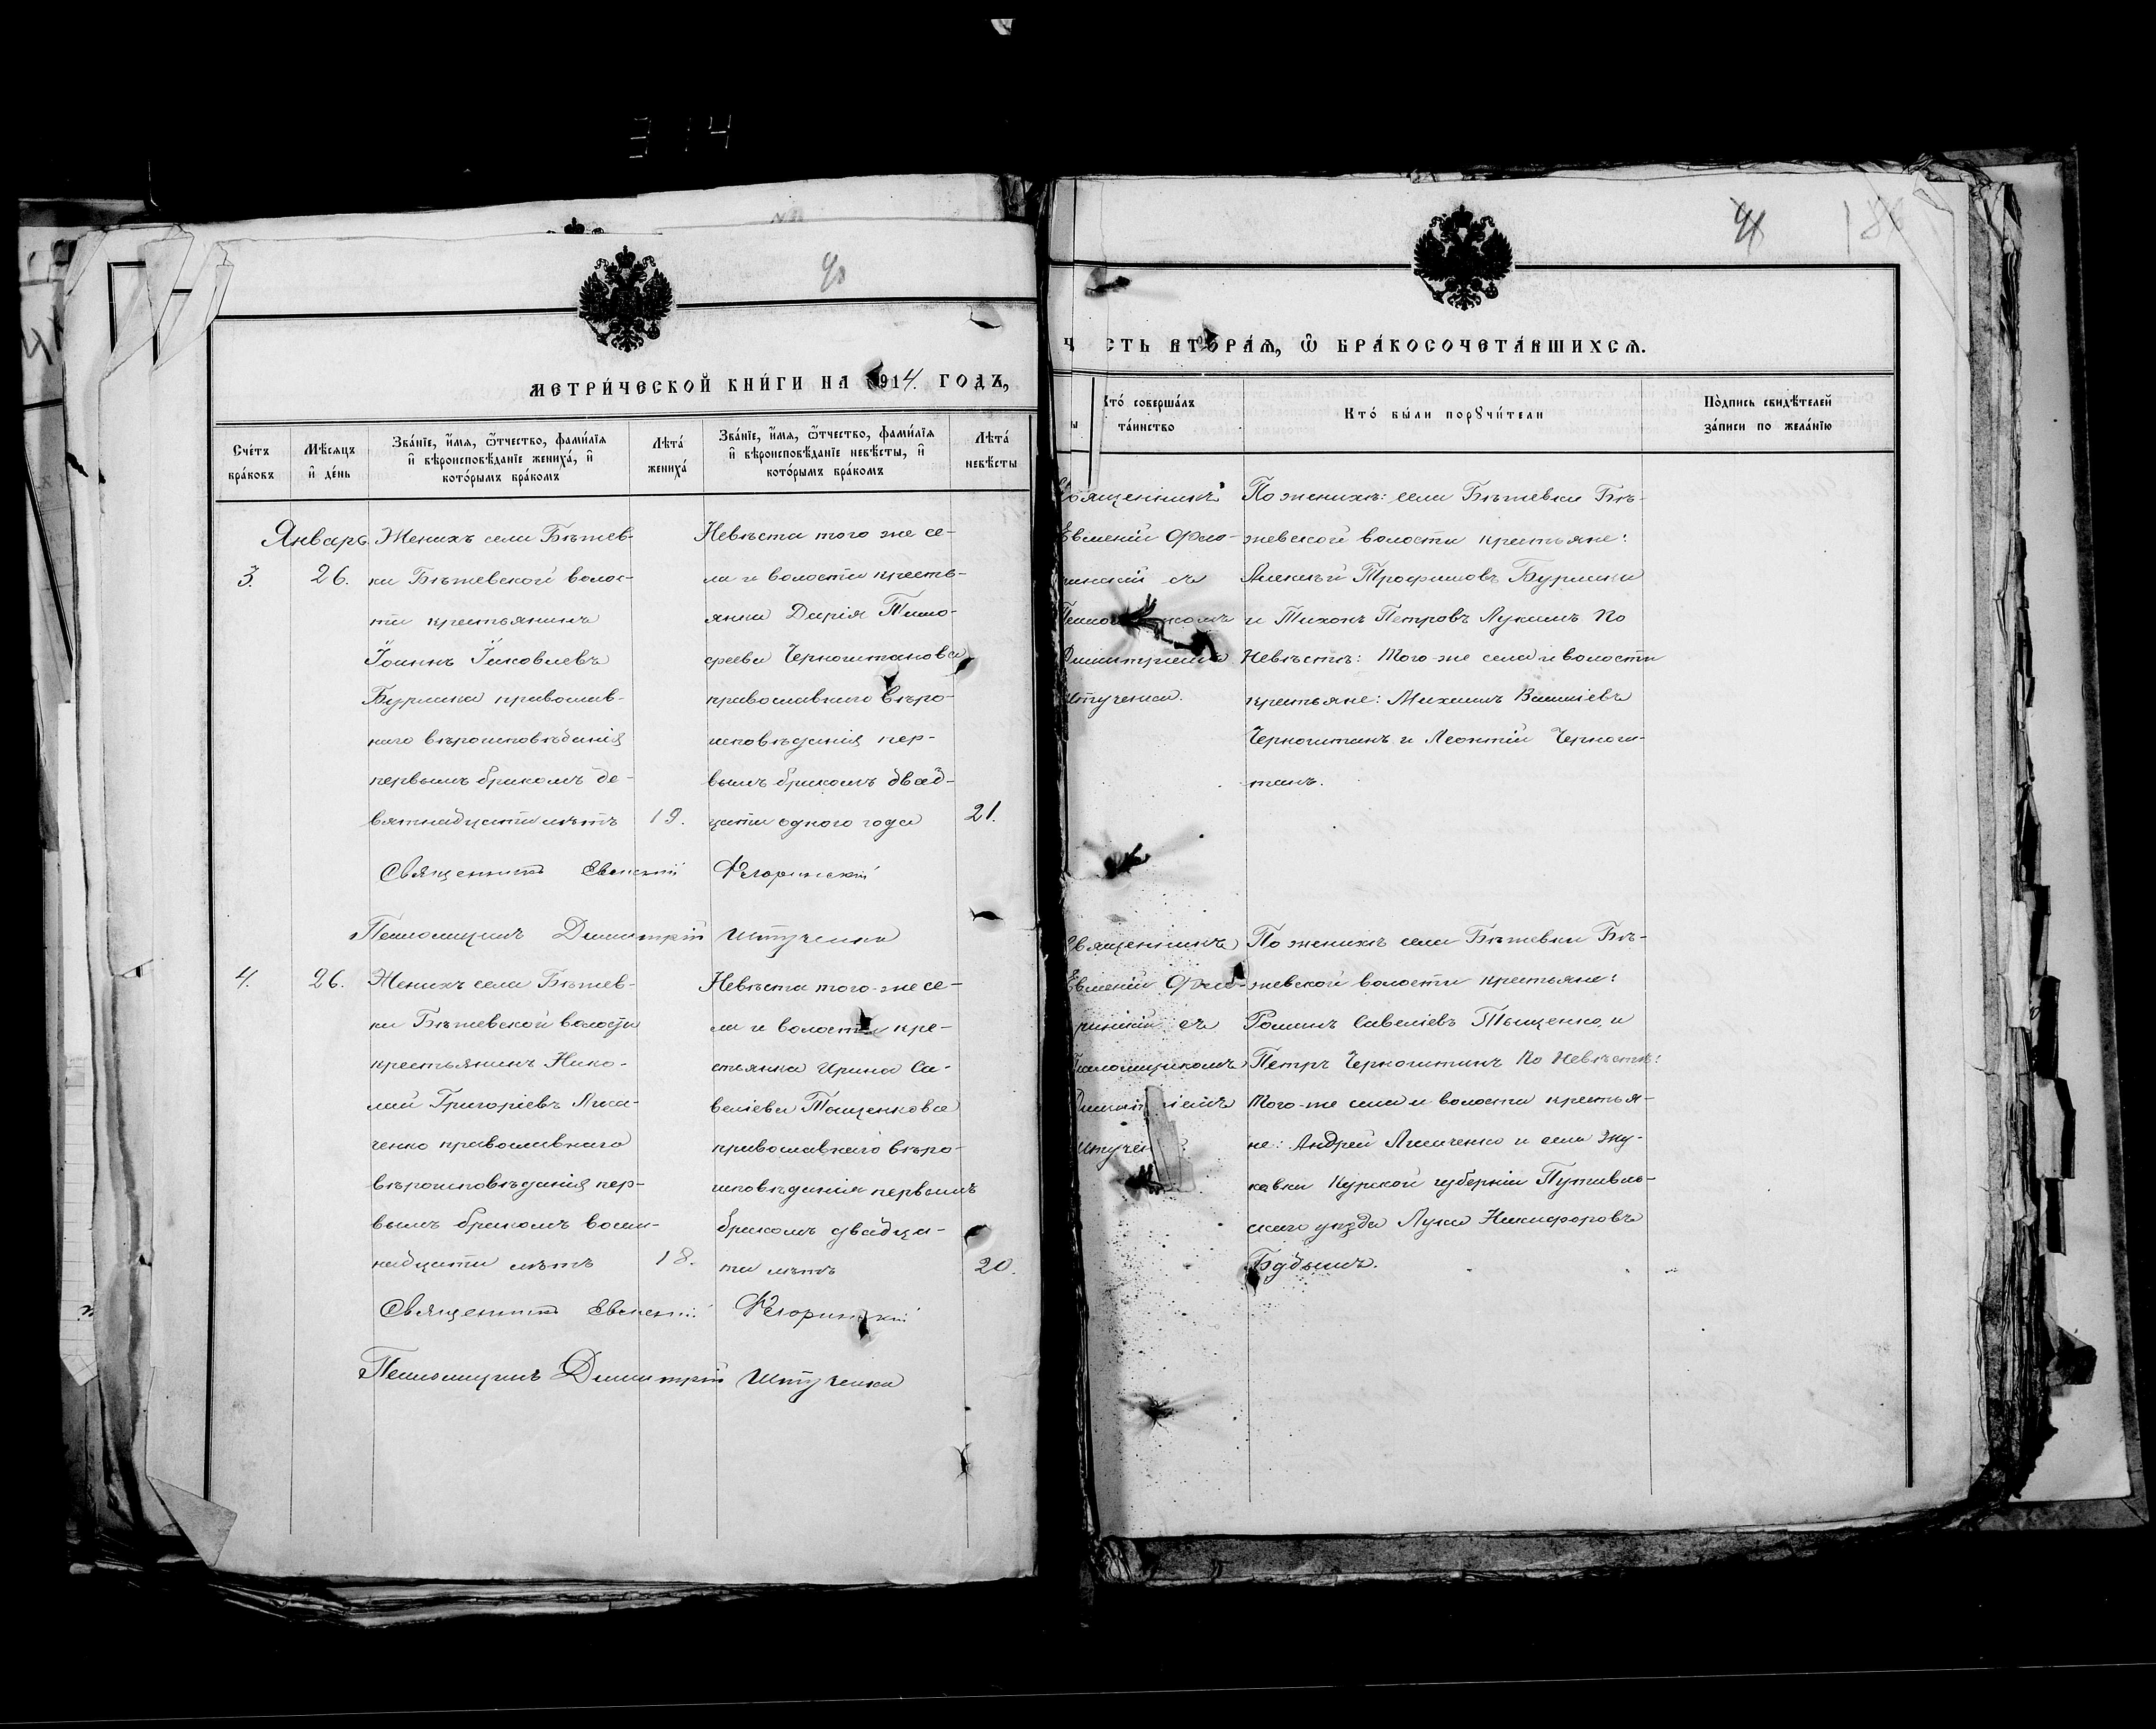 314
40
МЕТРИ́ЧЕСКОЙ КНИ́ГИ НА 1914. ГОДЪ,
Сче́тъ бра́ковъ
Мѣ́сяцъ и҆ де́нь
Зва́нїе, и҆́мя, ѻ҆́тчество, фами́лїя и҆ вѣроисповѣ́данїе жениха́, и҆ кото́рымъ бра́комъ
Лѣта́ жениха́
Зва́нїе, и҆́мя, ѻ҆́тчество, фами́лїя и҆ вѣроисповѣ́данїе невѣ́сты, и҆ кото́рымъ бра́комъ
Лѣта́ невѣ́сты
Январь
3.
26.
Женихъ села Бѣжев-
ки Бѣжевской волос-
ти крестьянинъ
Іоаннъ Іаковлевъ
Бурлака православ-
наго вѣроисповѣданія
первымъ бракомъ де-
вятнадцати лѣтъ
19.
Невѣста того же се-
ла и волости кресть-
янка Дарія Тимо-
феева Черноштанова
православнаго вѣро-
исповѣданія пер-
вымъ бракомъ двад-
цати одного года
21.
Священникъ Евменій Флоринскій
Псаломщикъ Димитрій Штученко
4.
26.
Женихъ села Бѣжев-
ки Бѣжевской волости
крестьянинъ Нико-
лай Григоріевъ
православнаго
вѣроисповѣданія пер-
вымъ бракомъ восем-
надцати лѣтъ
18.
Невѣста того-же се-
ла и волости кре-
стьянка Ирина Са-
веліева Тищенкова
православнаго вѣро-
исповѣданія первымъ
бракомъ двадца-
ти лѣтъ
20.
Священникъ Евменій Флоринскій
Псаломщикъ Димитрій Штученко
41
СТЬ ВТОРА́Я, Ѽ БРА́КОСОЧЕТА́ВШИХСЯ.
Кто́ соверша́лъ та́инство
Кто́ бы́ли порꙋчи́тели
По́дпись свидѣ́телей за́писи по жела́нїю
Священникъ
Евменій Фло-
ринскій съ
Псаломщикомъ
Димитріемъ
Штученко.
По женихѣ: села Бѣжевки Бѣ-
жевской волости крестьяне:
Алексѣй Трофимовъ Бурлака
и Тихонъ Петровъ Лукашъ По
Невѣстѣ: Того-же села и волости
крестьяне: Михаилъ Василіевъ
Черноштанъ и Леонтій Черно-
штанъ.
Священникъ
Евменій Фло-
ринскій съ
Псаломщикомъ
Димитріемъ
Штученко
По женихѣ села Бѣжевки Бѣ-
жевской волости крестьяне:
Романъ Савеліевъ Тищенко, и
Петръ Черноштанъ По Невѣстѣ:
Того-же села и волости крестья-
не: Андрей и села
Курской губерніи Путивль-
скаго уѣзда Лука Никифоровъ